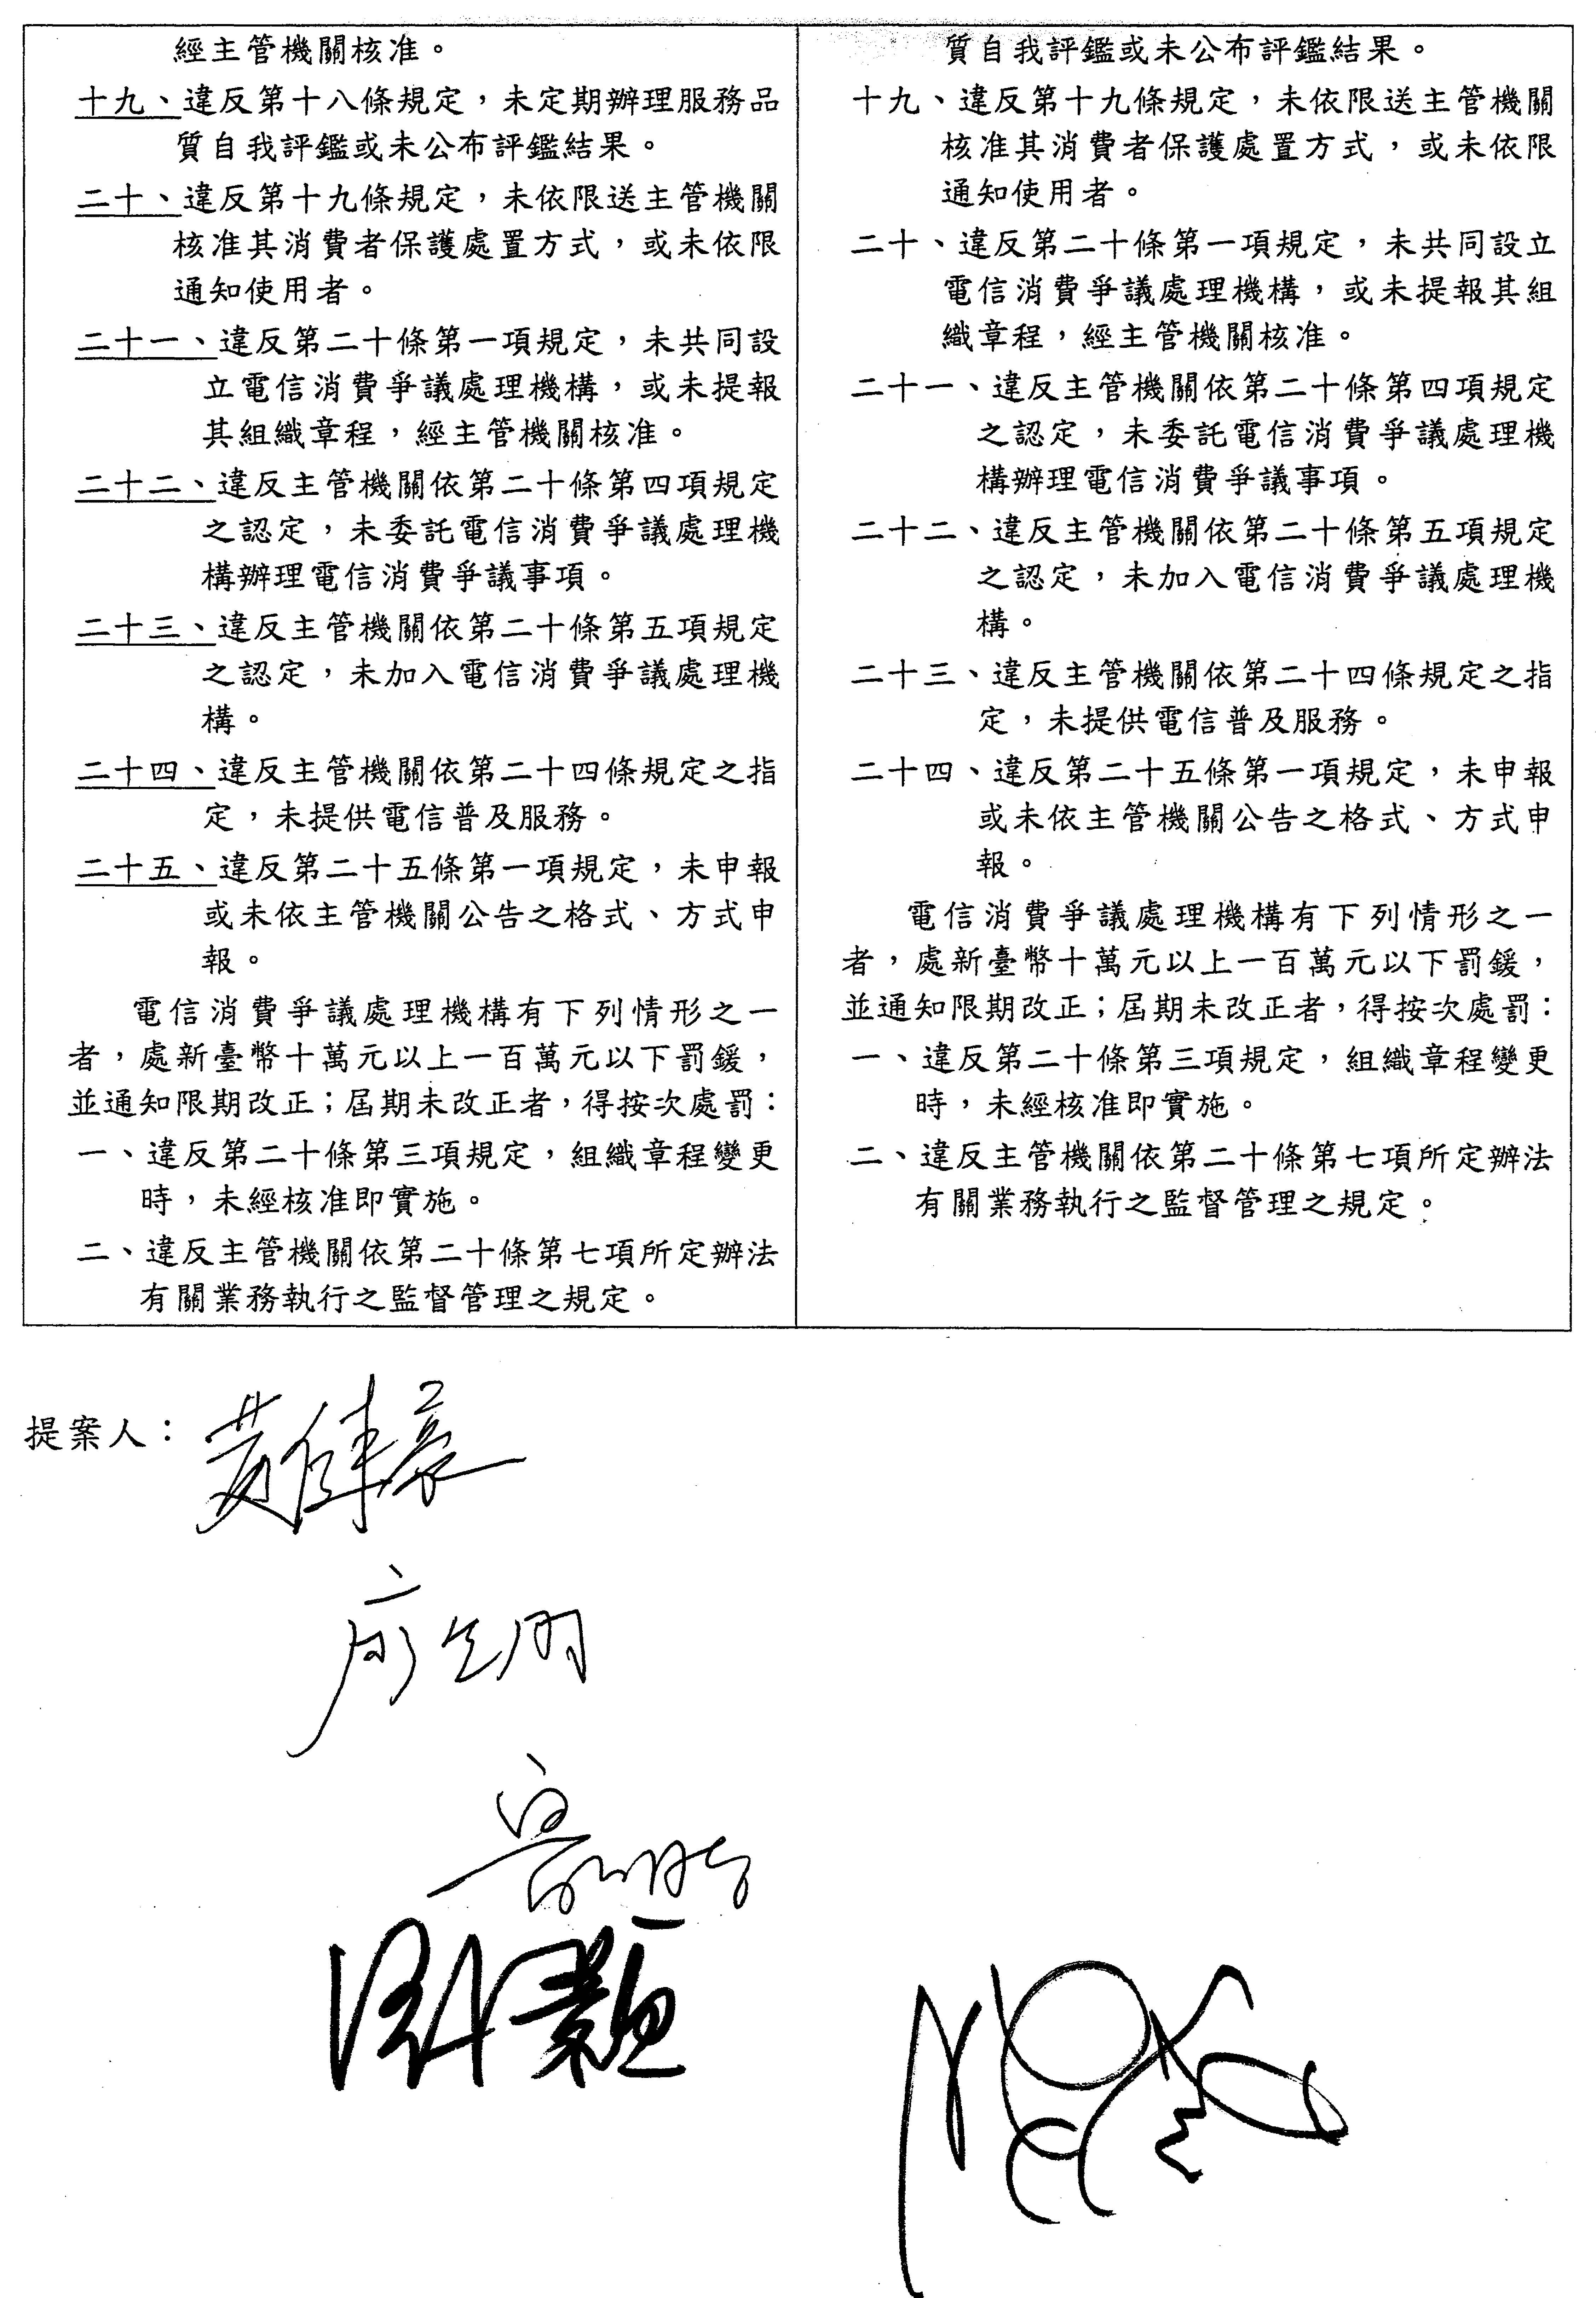 經主管機關核准。
十九、違反第十八條規定，未定期辦理服務品
質自我評鑑或未公布評鑑結果。
二十、違反第十九條規定，未依限送主管機關
核准其消費者保護處置方式，或未依限
通知使用者。
二十一、違反第二十條第一項規定，未共同設
立電信消費爭議處理機構，或未提報
其組織章程，經主管機關核准。
二十二、違反主管機關依第二十條第四項規定
之認定，未委託電信消費爭議處理機
構辦理電信消費爭議事項。
二十三、違反主管機關依第二十條第五項規定
之認定，未加入電信消費爭議處理機
構。
二十四、違反主管機關依第二十四條規定之指
定，未提供電信普及服務。
二十五、違反第二十五條第一項規定，未申報
或未依主管機關公告之格式、方式申
報。
電信消費爭議處理機構有下列情形之一
者，處新臺幣十萬元以上一百萬元以下罰鍰，
並通知限期改正；屆期未改正者，得按次處罰：
一、違反第二十條第三項規定，組織章程變更
時，未經核准即實施。
二、違反主管機關依第二十條第七項所定辦法
有關業務執行之監督管理之規定。
質自我評鑑或未公布評鑑結果。
十九、違反第十九條規定，未依限送主管機關
核准其消費者保護處置方式，或未依限
通知使用者。
二十、違反第二十條第一項規定，未共同設立
電信消費爭議處理機構，或未提報其組
織章程，經主管機關核准。
二十一、違反主管機關依第二十條第四項規定
之認定，未委託電信消費爭議處理機
構辦理電信消費爭議事項。
二十二、違反主管機關依第二十條第五項規定
之認定，未加入電信消費爭議處理機
構。
二十三、違反主管機關依第二十四條規定之指
定，未提供電信普及服務。
二十四、違反第二十五條第一項規定，未申報
或未依主管機關公告之格式、方式申
報。
電信消費爭議處理機構有下列情形之一
者，處新臺幣十萬元以上一百萬元以下罰鍰，
並通知限期改正；屆期未改正者，得按次處罰：
一、違反第二十條第三項規定，組織章程變更
時，未經核准即實施。
二、違反主管機關依第二十條第七項所定辦法
有關業務執行之監督管理之規定。
提案人：